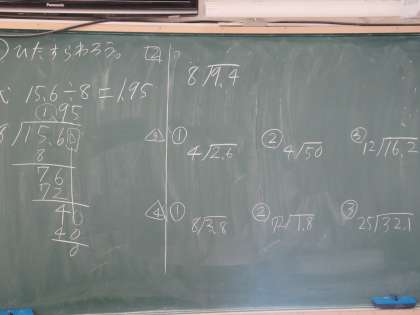 Panasonic
ひたすらわろう。
15.6÷8=1.95
1.95
8)15.60
8
76
72
40
40
0
2
8)9.4
3 ① 4)2.6 ② 4)50 ③ 12)16.2
4 ① 8)3.8 ② )1.8 ③ 25)32.1